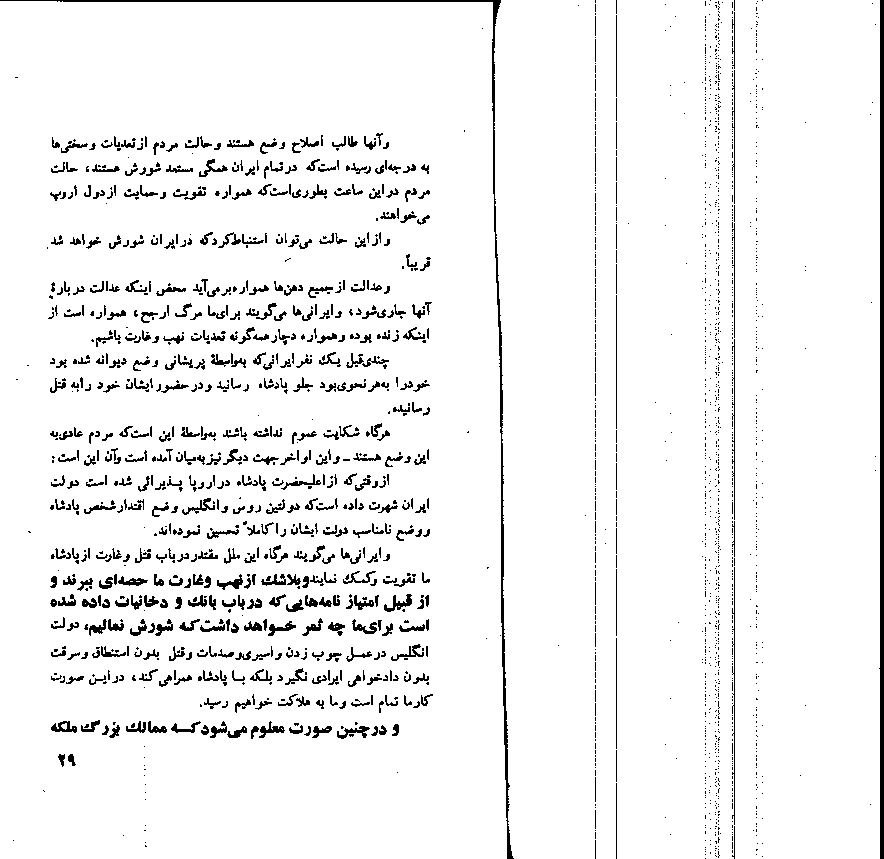 وآنها طالب اصلاح وضع هستند وحالت مردم ازتعدیات وسختی‌ها
به درجه‌ای رسیده است‌که درتمام ایران همگی مستعد شورش هستند، حالت
مردم دراین ساعت بطوری‌است‌که همواره تقویت وحمایت ازدول اروپ
می‌خواهند.
وازاین حالت می‌توان استنباط‌کردکه درایران شورش خواهد شد
قریباً.
وعدالت ازجمیع دهن‌ها همواره‌برمی‌آید محض اینکه عدالت دربارهٔ
آنها جاری‌شود، وایرانی‌ها می‌گویند برای‌ما مرگ ارجح، همواره است از
اینکه زنده بوده وهمواره دچارهمه‌گونه تعدیات نهب وغارت باشیم.
چندی‌قبل یک نفرایرانی‌که به‌واسطهٔ پریشانی وضع دیوانه شده بود
خودرا به‌هرنحوی‌بود جلو پادشاه رسانید ودرحضورایشان خود رابه قتل
رسانیده.
هرگاه شکایت عموم نداشته باشند به‌واسطهٔ این است‌که مردم عادی‌به
این وضع هستند ـ واین اواخرجهت دیگرنیزبه‌میان آمده است وآن این است:
ازوقتی‌که ازاعلیحضرت پادشاه دراروپا پـذیرائی شده است دولت
ایران شهرت داده است‌که دولتین روس وانگلیس وضع اقتدارشخص پادشاه
ووضع نامناسب دولت ایشان راکاملاً تحسین نموده‌اند.
وایرانی‌ها می‌گویند هرگاه این ملل مقتدردرباب قتل وغارت ازپادشاه
ما تقویت وکمک نمایندوبلاشک ازنهب وغارت ما حصه‌ای ببرند و
ازقبیل امتیاز نامه‌هایی‌که درباب بانک و دخانیات داده شده
است برای‌ما چه ثمر خـواهد داشت‌کـه شورش نمائیم، دولت
انگلیس درعمـل چوب زدن واسیری‌وصدمات وقتل بدون استنطاق وسرقت
بدون دادخواهی ایرادی نگیرد بلکه بـا پادشاه همراهی‌کند، درایـن صورت
کارما تمام است وما به هلاکت خواهیم رسید.
و درچنین صورت معلوم می‌شودکـــه ممالک بزرگ ملکه
۲۹